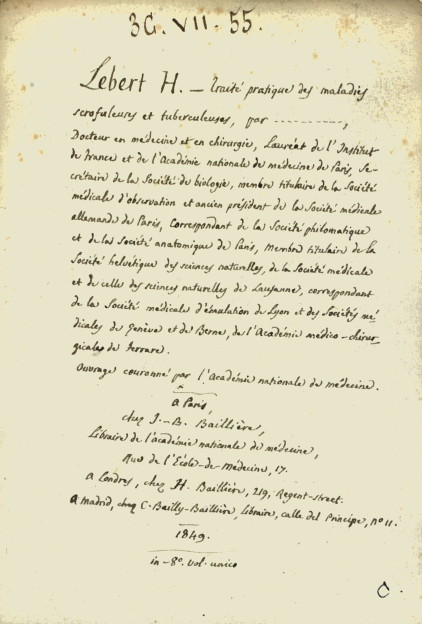 3G. VII. 55.
Lebert H. — Traité pratique des maladies
scrofuleuses et tuberculeuses, par ----------,
Docteur en médecine et en chirurgie, Lauréat de l'Institut
de france et de l'Académie nationale de médecine de Paris, Se-
crétaire de la Société de biologie, membre titulaire de la Société
médicale d'observation et ancien président de la Société médicale
allemande de Paris, Correspondant de la Société philomatique
et de la Société anatomique de Paris, Membre titulaire de la
Société helvetique des sciences naturelles, de la Société médicale
et de celle des sciences naturelles de Lausanne, correspondant
de la Société médicale d'émulation de Lyon et des Sociétés mé-
dicales de Genève et de Berne, de l'Académie médico-chirur-
gicales de ferrare.
Ouvrage couronné par l'Académie nationale de médecine.
a Paris
chez J.-B. Baillière,
Libraire de l'académie nationale de médecine,
Rue de l'Ecole-de-Médecine, 17.
a Londres, chez H. Baillière, 219, Regent-street.
a Madrid, chez C. Bailly-Baillière, Libraire, calle del Principe, nº 11.
1849.
in-8º. vol. unico
C.